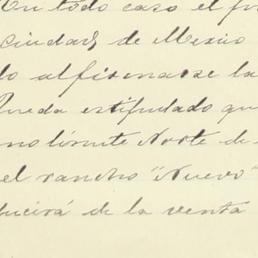 En todo caso el
Ciudad de Mexico
al firmarse la
Queda estipulado que
no límite Norte de
el rancho "Nuevo"
ducirá de la venta